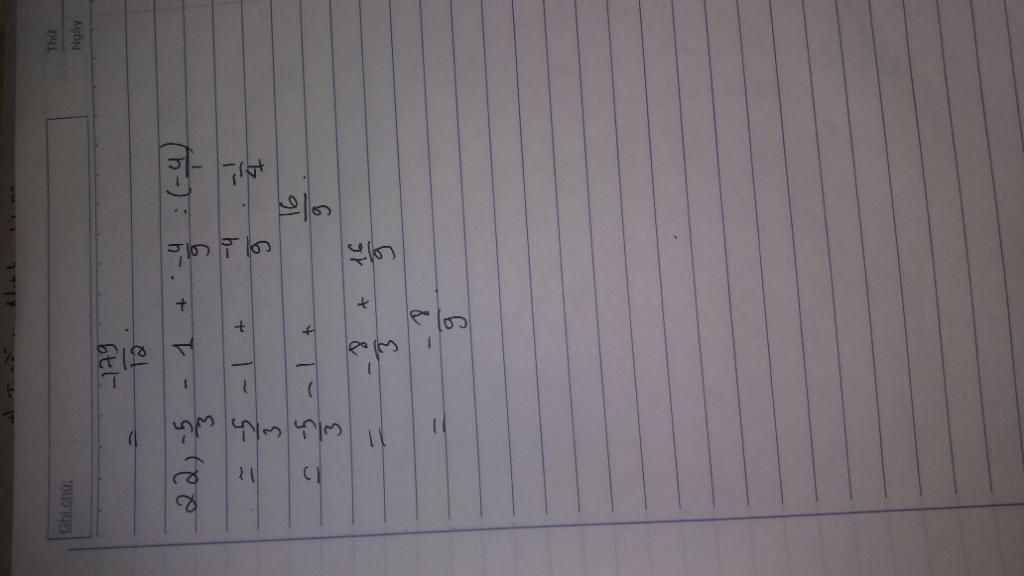 Thứ
Ngày
Ghi chú:
= -179/12.
22, -5/3 - 1 + -4/9 : (-4/1)
= -5/3 - 1 + -4/9 . -1/4
= -5/3 - 1 + 16/9.
= -8/3 + 16/9
= -8/9.